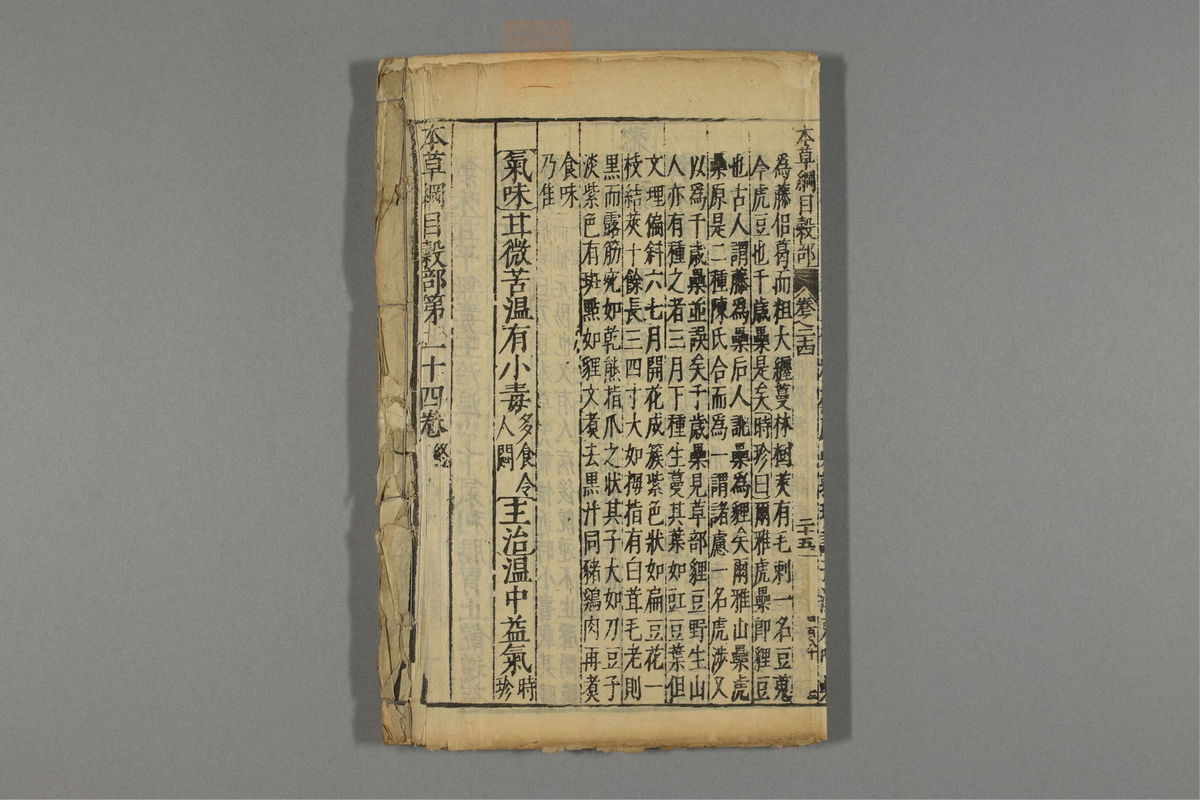 本草綱目穀部 卷之二十四 二十五
為藤侣葛而粗大纒蔓林樹莢有毛刺一名豆蒐
今虎豆也千歲虆是矣時珍曰爾雅虎虆卽貍豆
也古人謂藤為虆后人訛虆為貍矣爾雅山虆虎
虆原是二種陳氏合而為一謂諸慮一名虎涉又
以為千歲虆並誤矣千歲虆見草部貍豆野生山
人亦有種之者三月下種生蔓其葉如豇豆葉但
文理偏斜六七月開花成簇紫色狀如扁豆花一
枝結莢十餘長三四寸大如拇指有白茸毛老則
黒而露筋宛如乾熊指爪之狀其子大如刀豆子
淡紫色有斑㸃如貍文煮去黒汁同豬鷄肉再煮
食味
乃隹
氣味甘微苦温有小毒多食令人悶主治温中益氣時珍
本草綱目穀部第二十四卷終